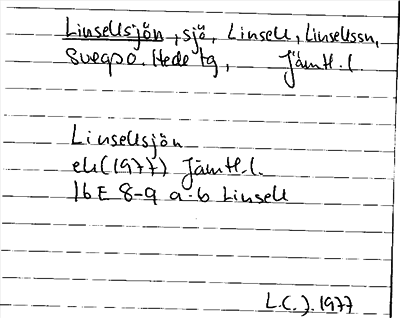 Linsellsjön, sjö, Linsell, Linsellssn,
Svegs o. Hede tg, Jämtl. l.
Linsellsjön
ek (1977) Jämtl. l.
16E 8-9 a-b Linsell
L.C.J. 1977